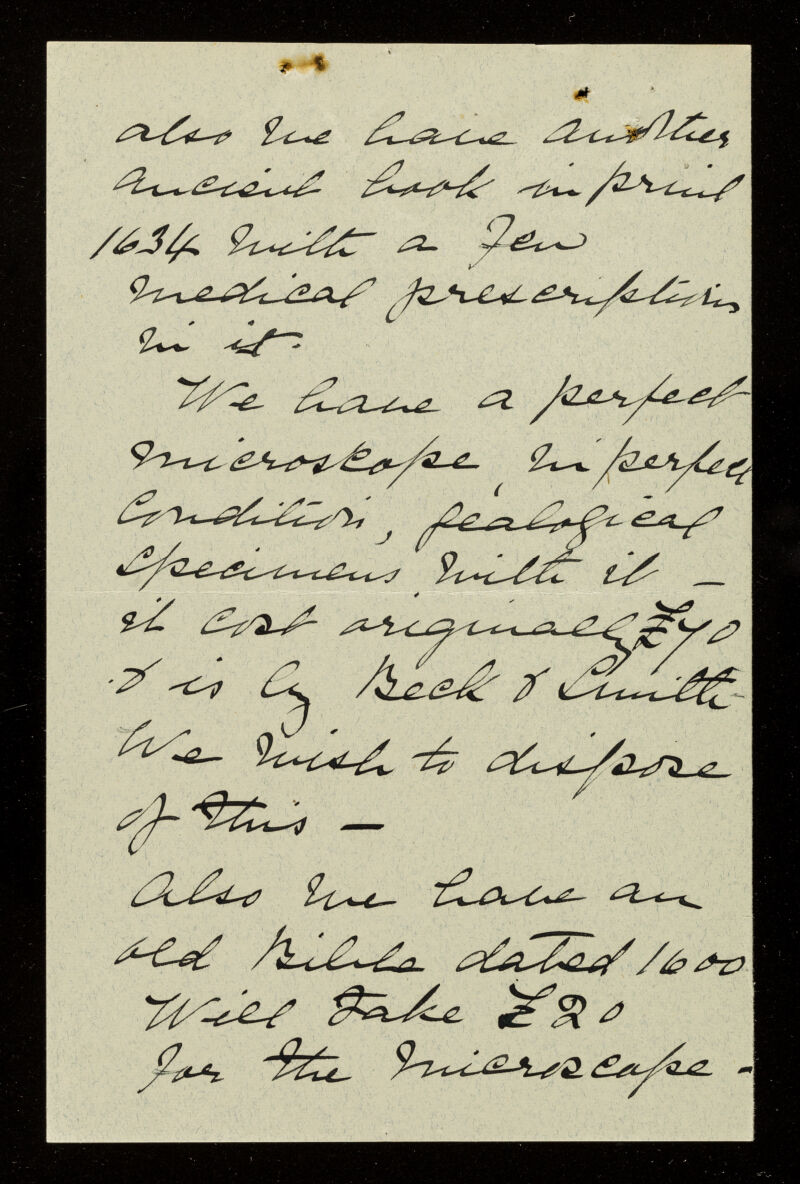 also we have another
ancient book in print
1634 with a few
medical prescriptions
in it.
We have a perfect
microscope, in perfect
condition, gealogical
specimens with it —
it cost originally £70
& is by Beck & Smith
We wish to dispose
of this —
Also we have an
old Bible dated 1600
Will take £20
for the microscope -